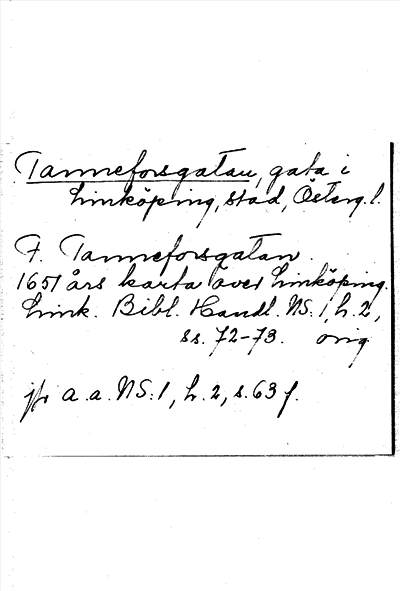 Tanneforsgatan, gata i
Linköping, stad, Österg. l.
F. Tanneforsgatan.
1651 års karta över Linköping.
Link. Bibl. Handl. NS: 1, h. 2,
ss. 72-73. orig.
jfr a. a. NS: 1, h. 2, s. 63 f.